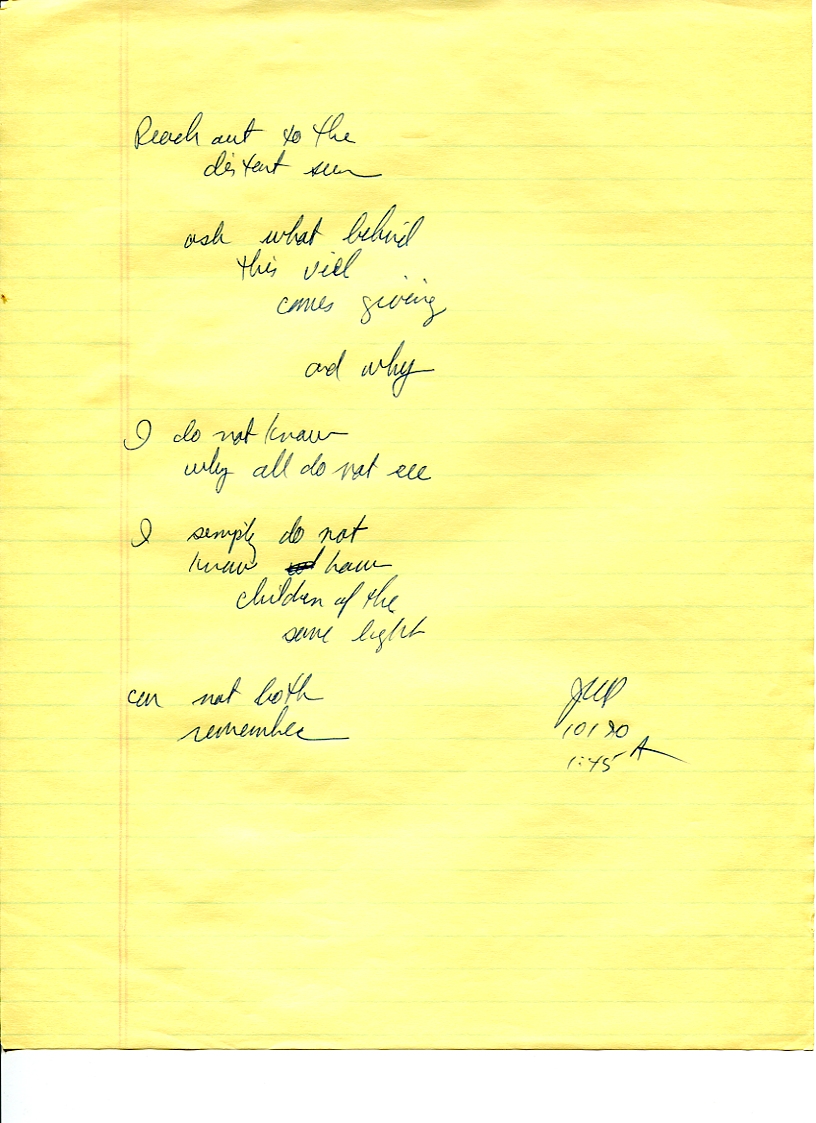 Reach out to the
distant sun
ask what behind
this veil
comes giving
and why
I do not know
why all do not see
I simply do not
know how
children of the
same light
can not both
remember
10/20
1:45 A